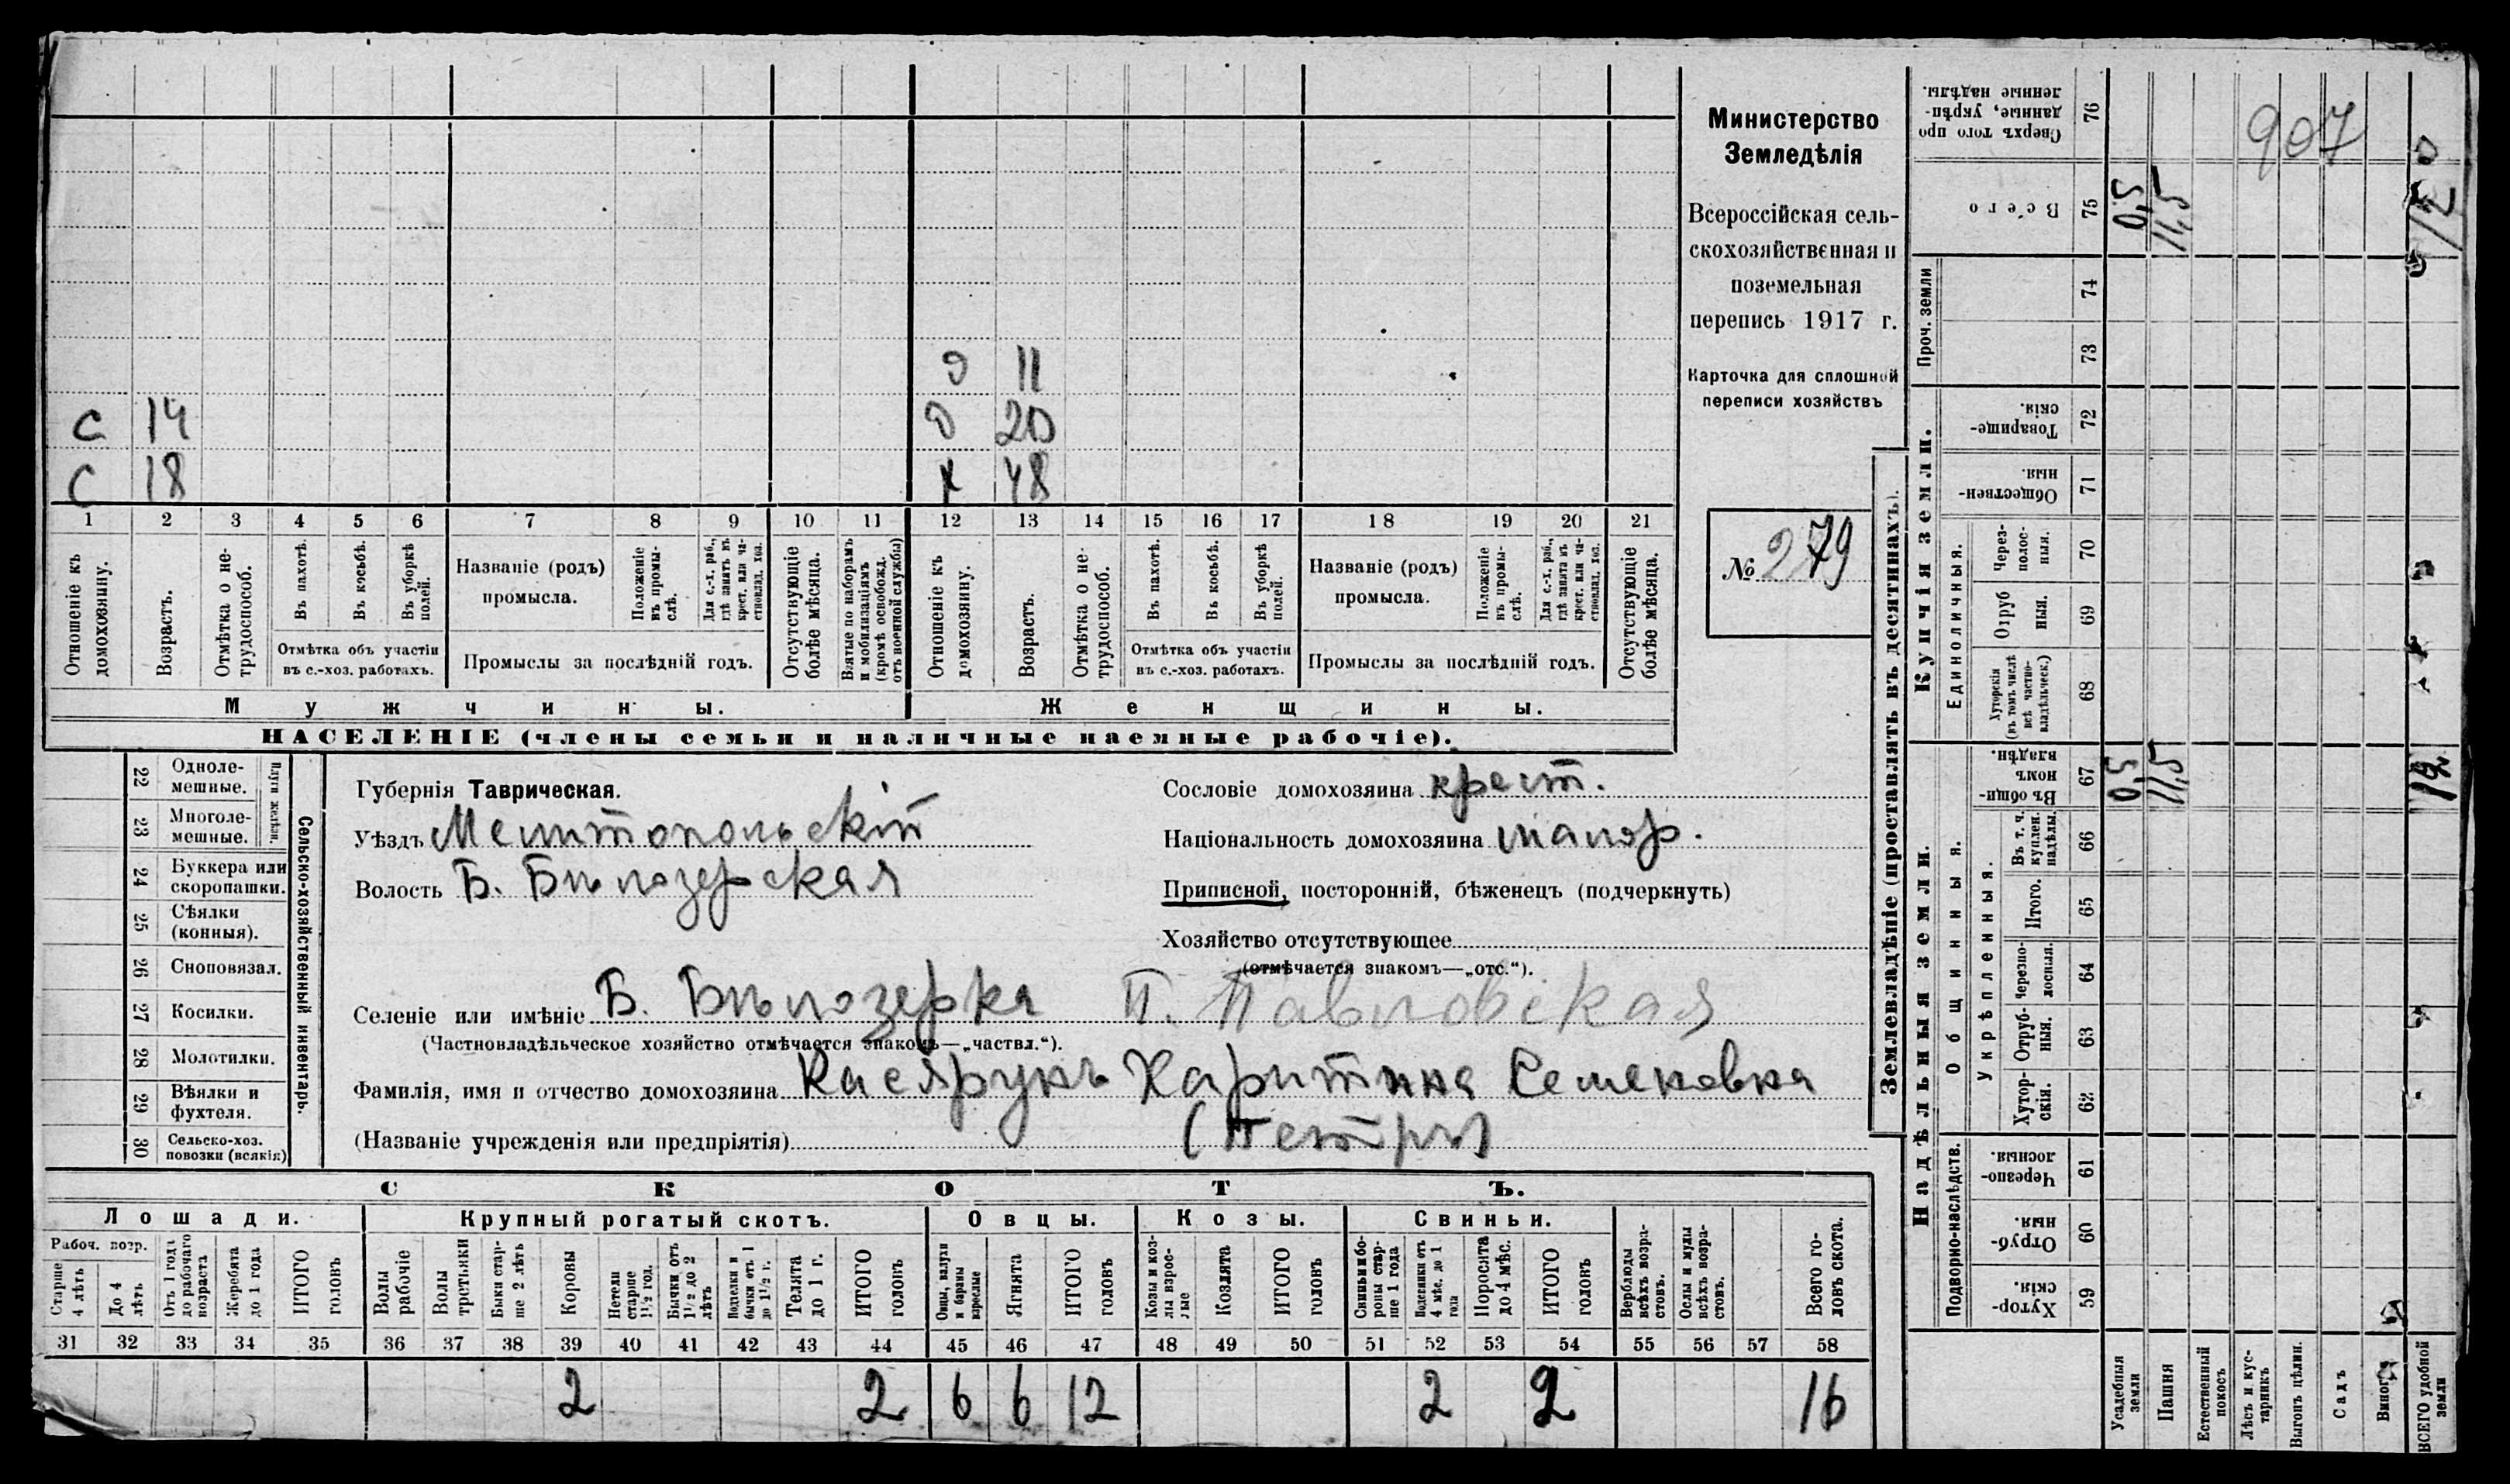 Министерство
Земледѣлія
Всероссійская сель-
скохозяйственная и
поземельная
перепись 1917 г.
Карточка для сплошной
переписи хозяйствъ
№ 279
907
С 14
С 18
Э 11
Д 20
Х 48
1 2 3 4 5 6 7 8 9 10 11 12 13 14 15 16 17 18 19 20 21
Отношеніе къ домохозяину.
Возрастъ.
Отмѣтка о не-трудоспособ.
Въ пахотѣ.
Въ косьбѣ.
Въ уборкѣ полей.
Отмѣтка объ участіи
въ с.-хоз. работахъ.
Названіе (родъ)
промысла.
Положеніе въ промы-слѣ.
Для с.-х. раб., гдѣ занятъ въ крест. или ча-стновлад. хоз.
Промыслы за послѣдній годъ.
Отсутствующіе болѣе мѣсяца.
Взятые по наборамъ и мобилизаціямъ (кромѣ освобожд. отъ военной службы)
Отношеніе къ домохозяину.
Возрастъ.
Отмѣтка о не-трудоспособ.
Въ пахотѣ.
Въ косьбѣ.
Въ уборкѣ полей.
Отмѣтка объ участіи
въ с.-хоз. работахъ.
Названіе (родъ)
промысла.
Положеніе въ промы-слѣ.
Для с.-х. раб., гдѣ занята въ крест. или ча-стновлад. хоз.
Промыслы за послѣдній годъ.
Отсутствующіе болѣе мѣсяца.
Мужчины.
Женщины.
НАСЕЛЕНІЕ (члены семьи и наличные наемные рабочіе).
22 Однолемешные.
23 Многолемешные.
Плуги желѣзн.
24 Буккера или скоропашки.
25 Сѣялки (конныя).
26 Сноповязал.
27 Косилки.
28 Молотилки.
29 Вѣялки и фухтеля.
30 Сельско-хоз. повозки (всякія)
Сельско-хозяйственный инвентарь.
Губернія Таврическая.
Уѣздъ Мелитопольскій
Волость Б. Бѣлозерская
Сословіе домохозяина крест.
Національность домохозяина малор.
Приписной, посторонній, бѣженецъ (подчеркнуть)
Хозяйство отсутствующее
(отмѣчается знакомъ—„отс.“).
Селеніе или имѣніе Б. Бѣлозерка П. Павловская
(Частновладѣльческое хозяйство отмѣчается знакомъ—„частвл.“).
Фамилія, имя и отчество домохозяина Харитина Семеновна
(Названіе учрежденія или предпріятія) (Петры)
СКОТЪ.
Лошади.
Крупный рогатый скотъ.
Овцы.
Козы.
Свиньи.
Рабоч. возр.
Старше 4 лѣтъ
До 4 лѣтъ
Отъ 1 года до рабочаго возраста
Жеребята до 1 года
ИТОГО головъ
Волы рабочіе
Волы третьяки
Быки стар-ше 2 лѣтъ
Коровы
Нетели старше 1½ год.
Бычки отъ 1½ до 2 лѣтъ
Подтелки и бычки отъ 1 до 1½ г.
Телята до 1 г.
ИТОГО головъ
Овцы, валухи и бараны взрослые
Ягнята
ИТОГО головъ
Козы и коз-лы взрос-лые
Козлята
ИТОГО головъ
Свиньи и бо-ровы стар-ше 1 года
Подсвинки отъ 4 мѣс. до 1 года
Поросята до 4 мѣс.
ИТОГО головъ
Верблюды всѣхъ возра-стовъ.
Ослы и мулы всѣхъ возра-стовъ.
Всего го-ловъ скота.
31 32 33 34 35 36 37 38 39 40 41 42 43 44 45 46 47 48 49 50 51 52 53 54 55 56 57 58
2 2 6 6 12 2 2 16
Землевладѣніе (проставлять въ десятинахъ).
Надѣльныя земли.
Купчія земли.
Проч. земли
Подворно-наслѣдств.
Общинныя.
Укрѣпленныя.
Единоличныя.
Сверхъ того про-данные, укрѣп-ленные надѣлы. 76
Всего 75 0,5 11,5 12
74
73
Товарище-скія. 72
Обществен-ныя. 71
Через-полос-ныя. 70
Отруб-ныя. 69
Хуторскія (въ томъ числѣ всѣ частно-владѣльческ.) 68
Въ общин-номъ владѣн. 67 0,5 11,5 12
Въ т. ч. куплен. надѣлы. 66
Итого. 65
Черезпо-лосныя. 64
Отруб-ныя. 63
Хутор-скія. 62
Черезпо-лосныя. 61
Отруб-ныя. 60
Хутор-скія. 59
Усадебныя земли
Пашня
Естественный покосъ
Лѣсъ и кус-тарникъ
Выгонъ цѣлин.
Садъ
ВСЕГО удобной земли